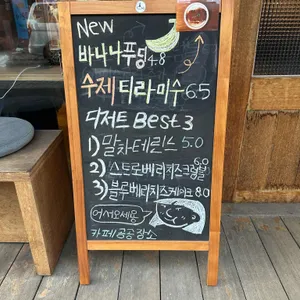 New
바나나푸딩 4.8
수제 티라미수 6.5
디저트 Best 3
1) 말차테린느 5.0
2) 스트로베리치즈크럼블 6.0
3) 블루베리치즈케이크 8.0
어서오세용
카페 공공장소